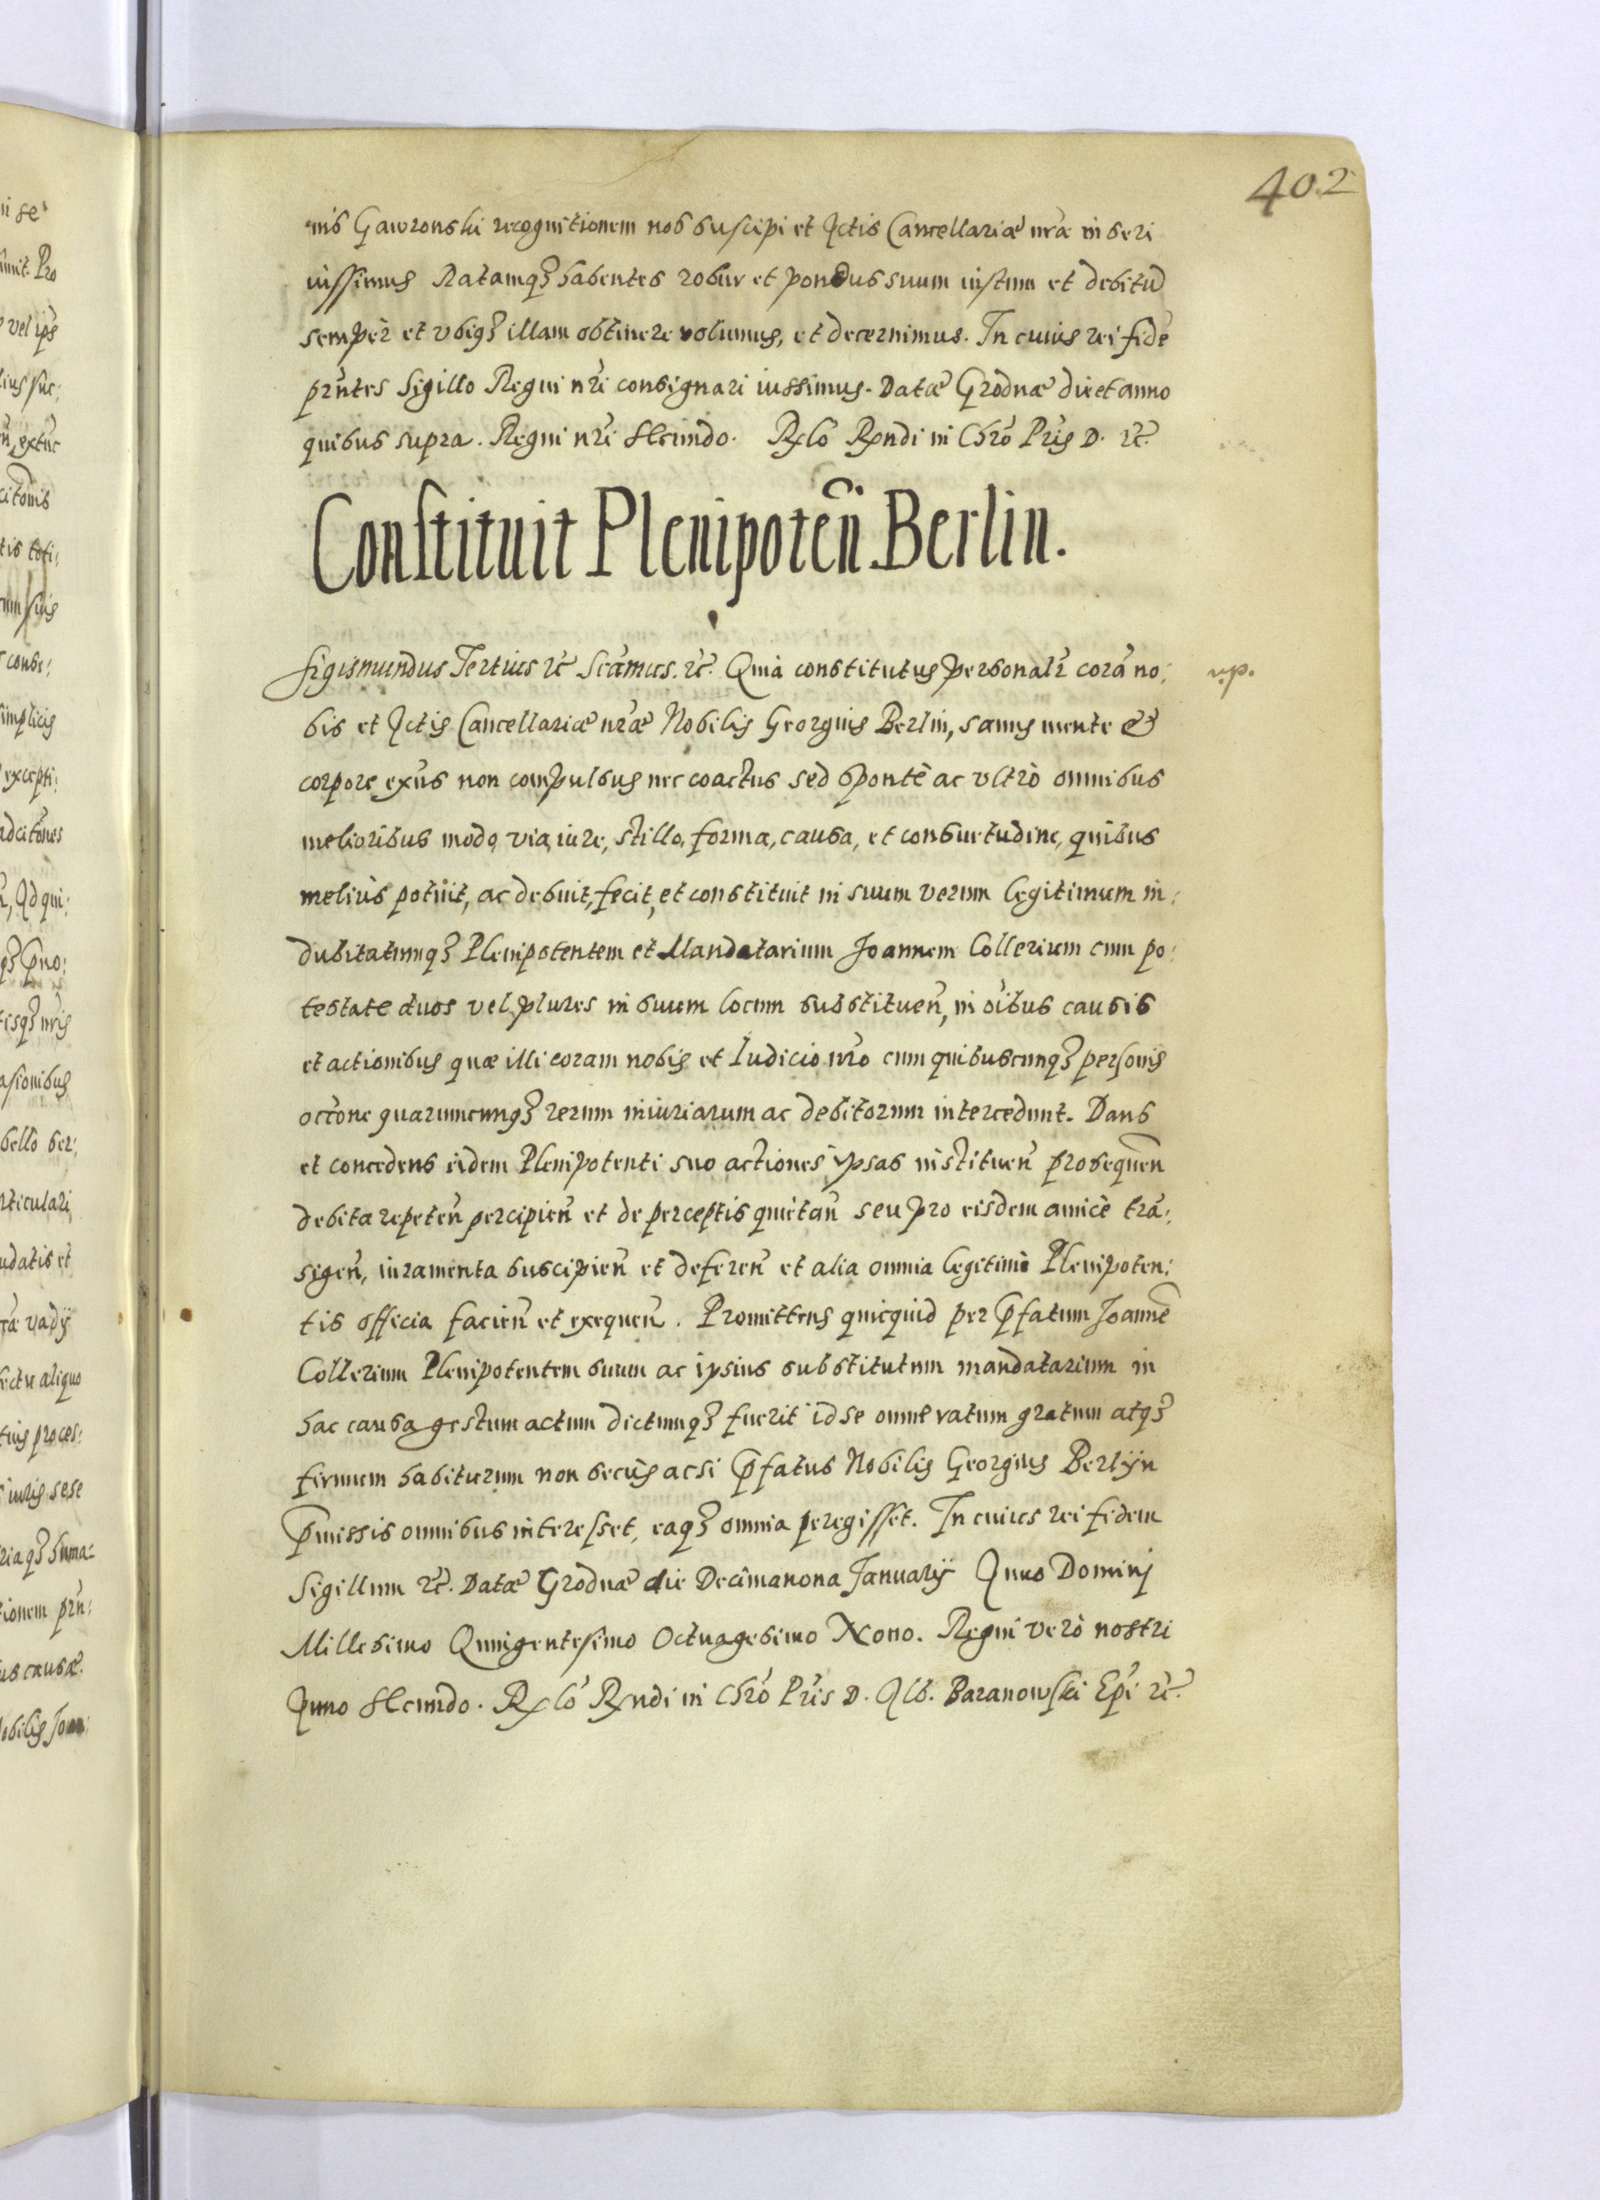 402
nis Gawronski recognitionem nos suscipi et Actis Cancellariæ nr̃æ inseri
iussimus Ratamqȝ habentes robur et pondus suum iustum et debitũ
semper et vbiqȝ illam obtinere volumus, et decernimus. In cuius rei fidẽ
prñtes Sigillo Regni nr̃i consignari iussimus. Datæ Grodnæ die et anno
quibus supra. Regni nr̃i Secundo. Rẽlo Rẽndi in Chr̃o Pr̃is D. &c̃.
Constituit Plenipoteñ Berlin.
Sigismundus Tertius &c̃ Scãmus. &c̃. Quia constitutus personalr̃ corã no:
bis et Actis Cancellariæ nr̃æ Nobilis Georgius Berlin, sanus mente &
corpore exñs non compulsus nec coactus sed spontè ac vltrò omnibus
melioribus modo, via, iure, stillo, forma, causa, et consuetudine, quibus
meliùs potuit, ac debuit, fecit, et constituit in suum verum legitimum in:
dubitatumqȝ Plenipotentem et Mandatarium Joannem Collerium cum po:
testate duos vel plures in suum locum substitueñ, in oĩbus causis
et actionibus quæ illi coram nobis et Iudicio nr̃o cum quibuscunqȝ personis
occõne quarumcunqȝ rerum iniuriarum ac debitorum intercedunt. Dans
et concedens eidem Plenipotenti suo actiones ipsas instituen̄ prosequen̄
debita repeten̄ percipien̄ et de perceptis quietan̄ seu pro eisdem amicè trã:
sigen̄, iuramenta suscipien̄ et deferen̄ et alia omnia legitimi Plenipoten:
tis officia facien̄ et exequen̄. Promittens quicquid per p̃fatum Joannẽ
Collerium Plenipotentem suum ac ipsius substitutum mandatarium in
hac causa gestum actum dictumqȝ fuerit id se omne ratum gratum atqȝ
firmum habiturum non secus ac si p̃fatus Nobilis Georgius Berlijn
p̃missis omnibus interesset, eaqȝ omnia peregisset. In cuius rei fidem
Sigillum &c̃. Datæ Grodnæ die Decimanona Januarij Anno Dominj
Millesimo Quingentesimo Octuagesimo Nono. Regni verò nostri
Anno Secundo. Rẽlo Rẽndi in Chr̃o Pr̃is D. Alb. Baranowski Epĩ &c̃.